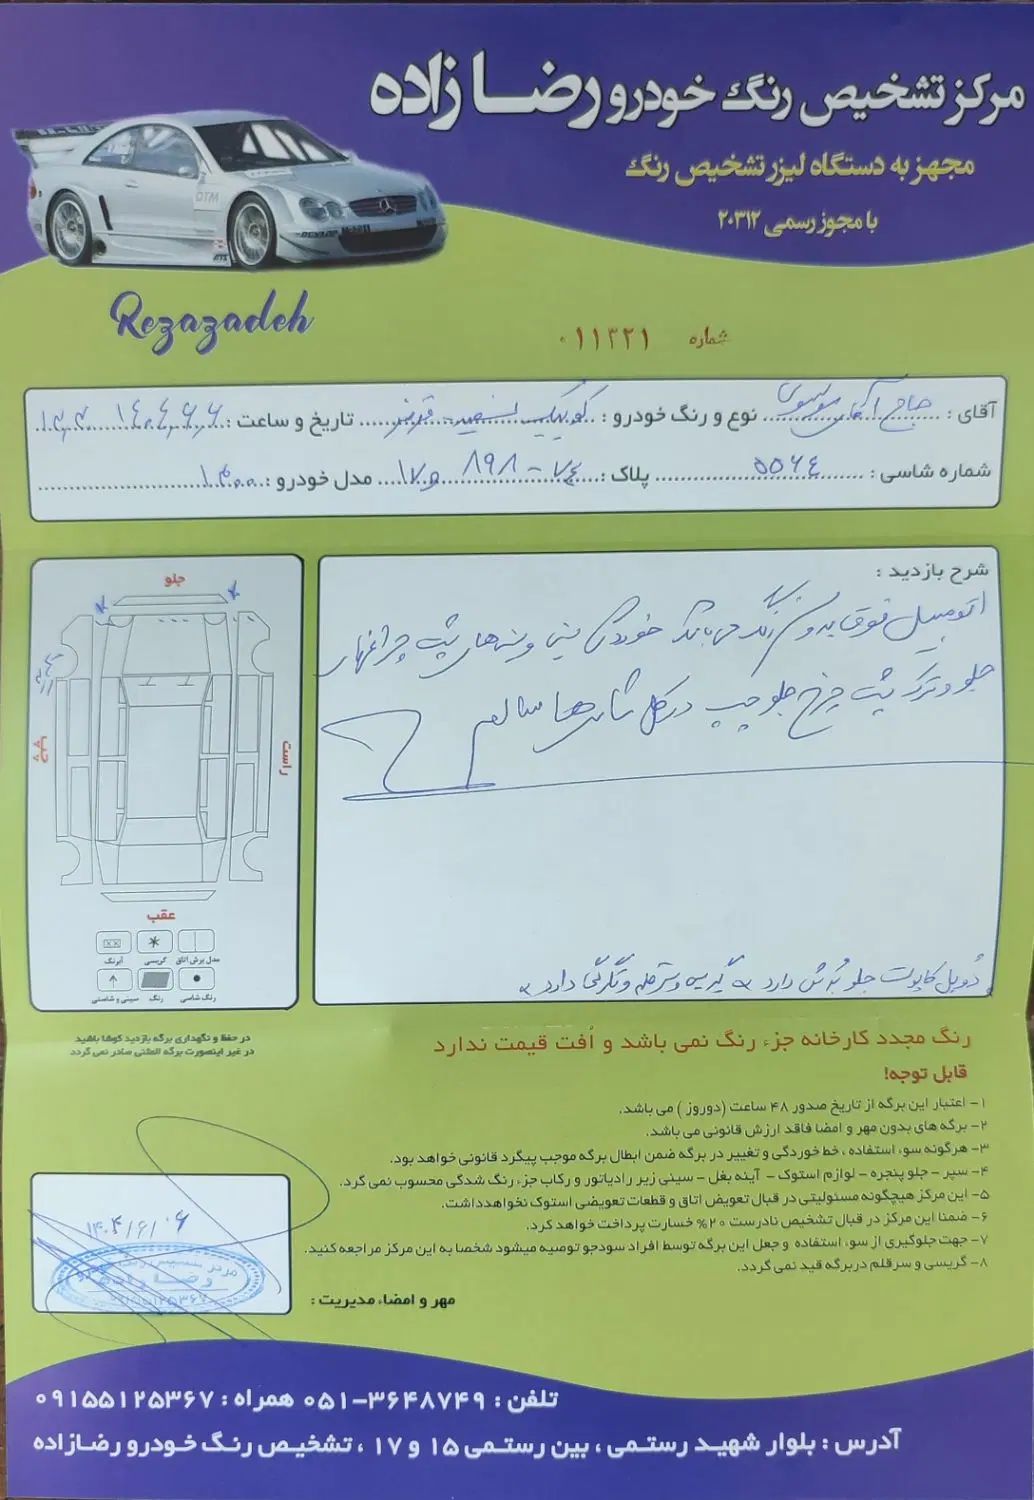 مرکز تشخیص رنگ خودرو رضا زاده
مجهز به دستگاه لیزر تشخیص رنگ
با مجوز رسمی ۲۰۳۱۲
Rezazadeh
شماره ۰۱۱۳۲۱
آقای : حاج آقای موسوی نوع و رنگ خودرو : کوییک سفید تاریخ و ساعت : ۱۴۰۴,۶,۶
شماره شاسی : ۵۵۶۴ پلاک : ۸۹۸ مدل خودرو : ۱۴۰۰
شرح بازدید :
اتومبیل فوق بدون رنگ می باشد خوردگی سینی و سرهای پشت چراغهای
جلو و ترک پشت چرخ جلو چپ در کل شاسی ها سالم
دوبل کاپوت جلو بُرش دارد * گریس و سرقلم و تگرگی دارد *
جلو
راست
چپ
عقب
مدل برش اتاق
گریسی
آبرنگ
رنگ شاسی
رنگ
سینی و شاسی
در حفظ و نگهداری برگه بازدید کوشا باشید
در غیر اینصورت برگه المثنی صادر نمی گردد
رنگ مجدد کارخانه جزء رنگ نمی باشد و اُفت قیمت ندارد
قابل توجه!
۱- اعتبار این برگه از تاریخ صدور ۴۸ ساعت (دوروز) می باشد.
۲- برگه های بدون مهر و امضا فاقد ارزش قانونی می باشد.
۳- هرگونه سوء استفاده ، خط خوردگی و تغییر در برگه ضمن ابطال برگه موجب پیگرد قانونی خواهد بود.
۴- سپر - جلو پنجره - لوازم استوک - آینه بغل - سینی زیر رادیاتور و رکاب جزء رنگ شدگی محسوب نمی گرد.
۵- این مرکز هیچگونه مسئولیتی در قبال تعویض اتاق و قطعات تعویضی استوک نخواهدداشت.
۶- ضمنا این مرکز در قبال تشخیص نادرست ۲۰% خسارت پرداخت خواهد کرد.
۷- جهت جلوگیری از سوء استفاده و جعل این برگه توسط افراد سودجو توصیه میشود شخصا به این مرکز مراجعه کنید.
۸- گریسی و سرقلم دربرگه قید نمی گردد.
مهر و امضاء مدیریت :
۱۴۰۴/۶/۰۶
مرکز تشخیص رنگ خودرو
رضا زاده
۰۹۱۵۵۱۲۵۳۶۷
تلفن : ۳۶۴۸۷۴۹-۰۵۱ همراه : ۰۹۱۵۵۱۲۵۳۶۷
آدرس : بلوار شهید رستمی ، بین رستمی ۱۵ و ۱۷ ، تشخیص رنگ خودرو رضازاده